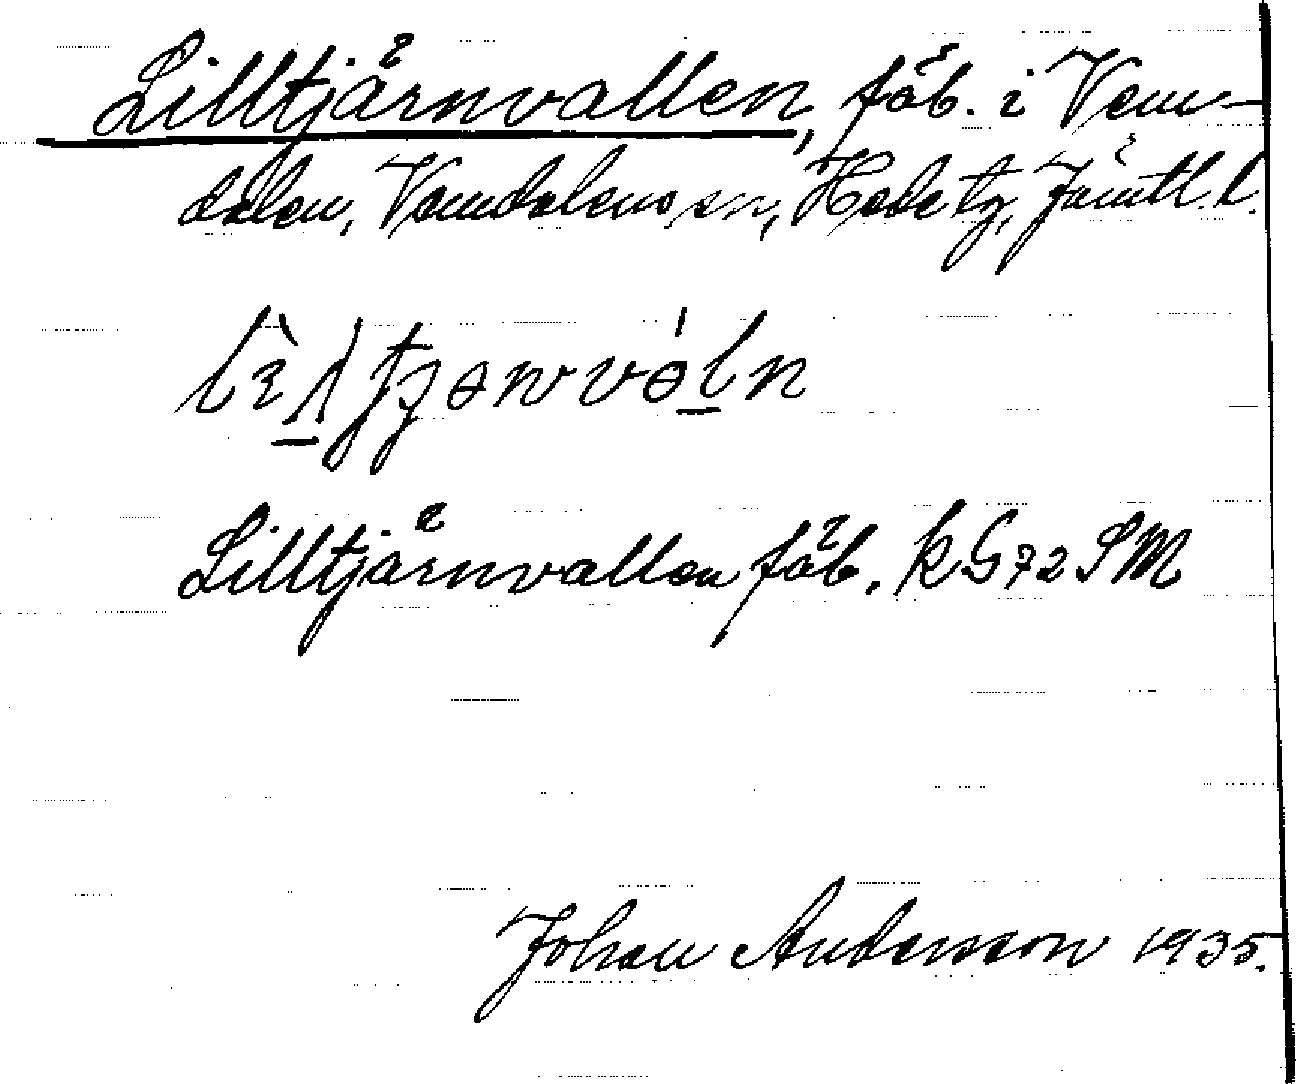 Lilltjärnvallen, fäb. i Vem-
dalen, Vemdalens sn, Hede tg, Jämtl. l.
Lilltjärnvallen fäb. kG72SM
Johan Andersson 1935.